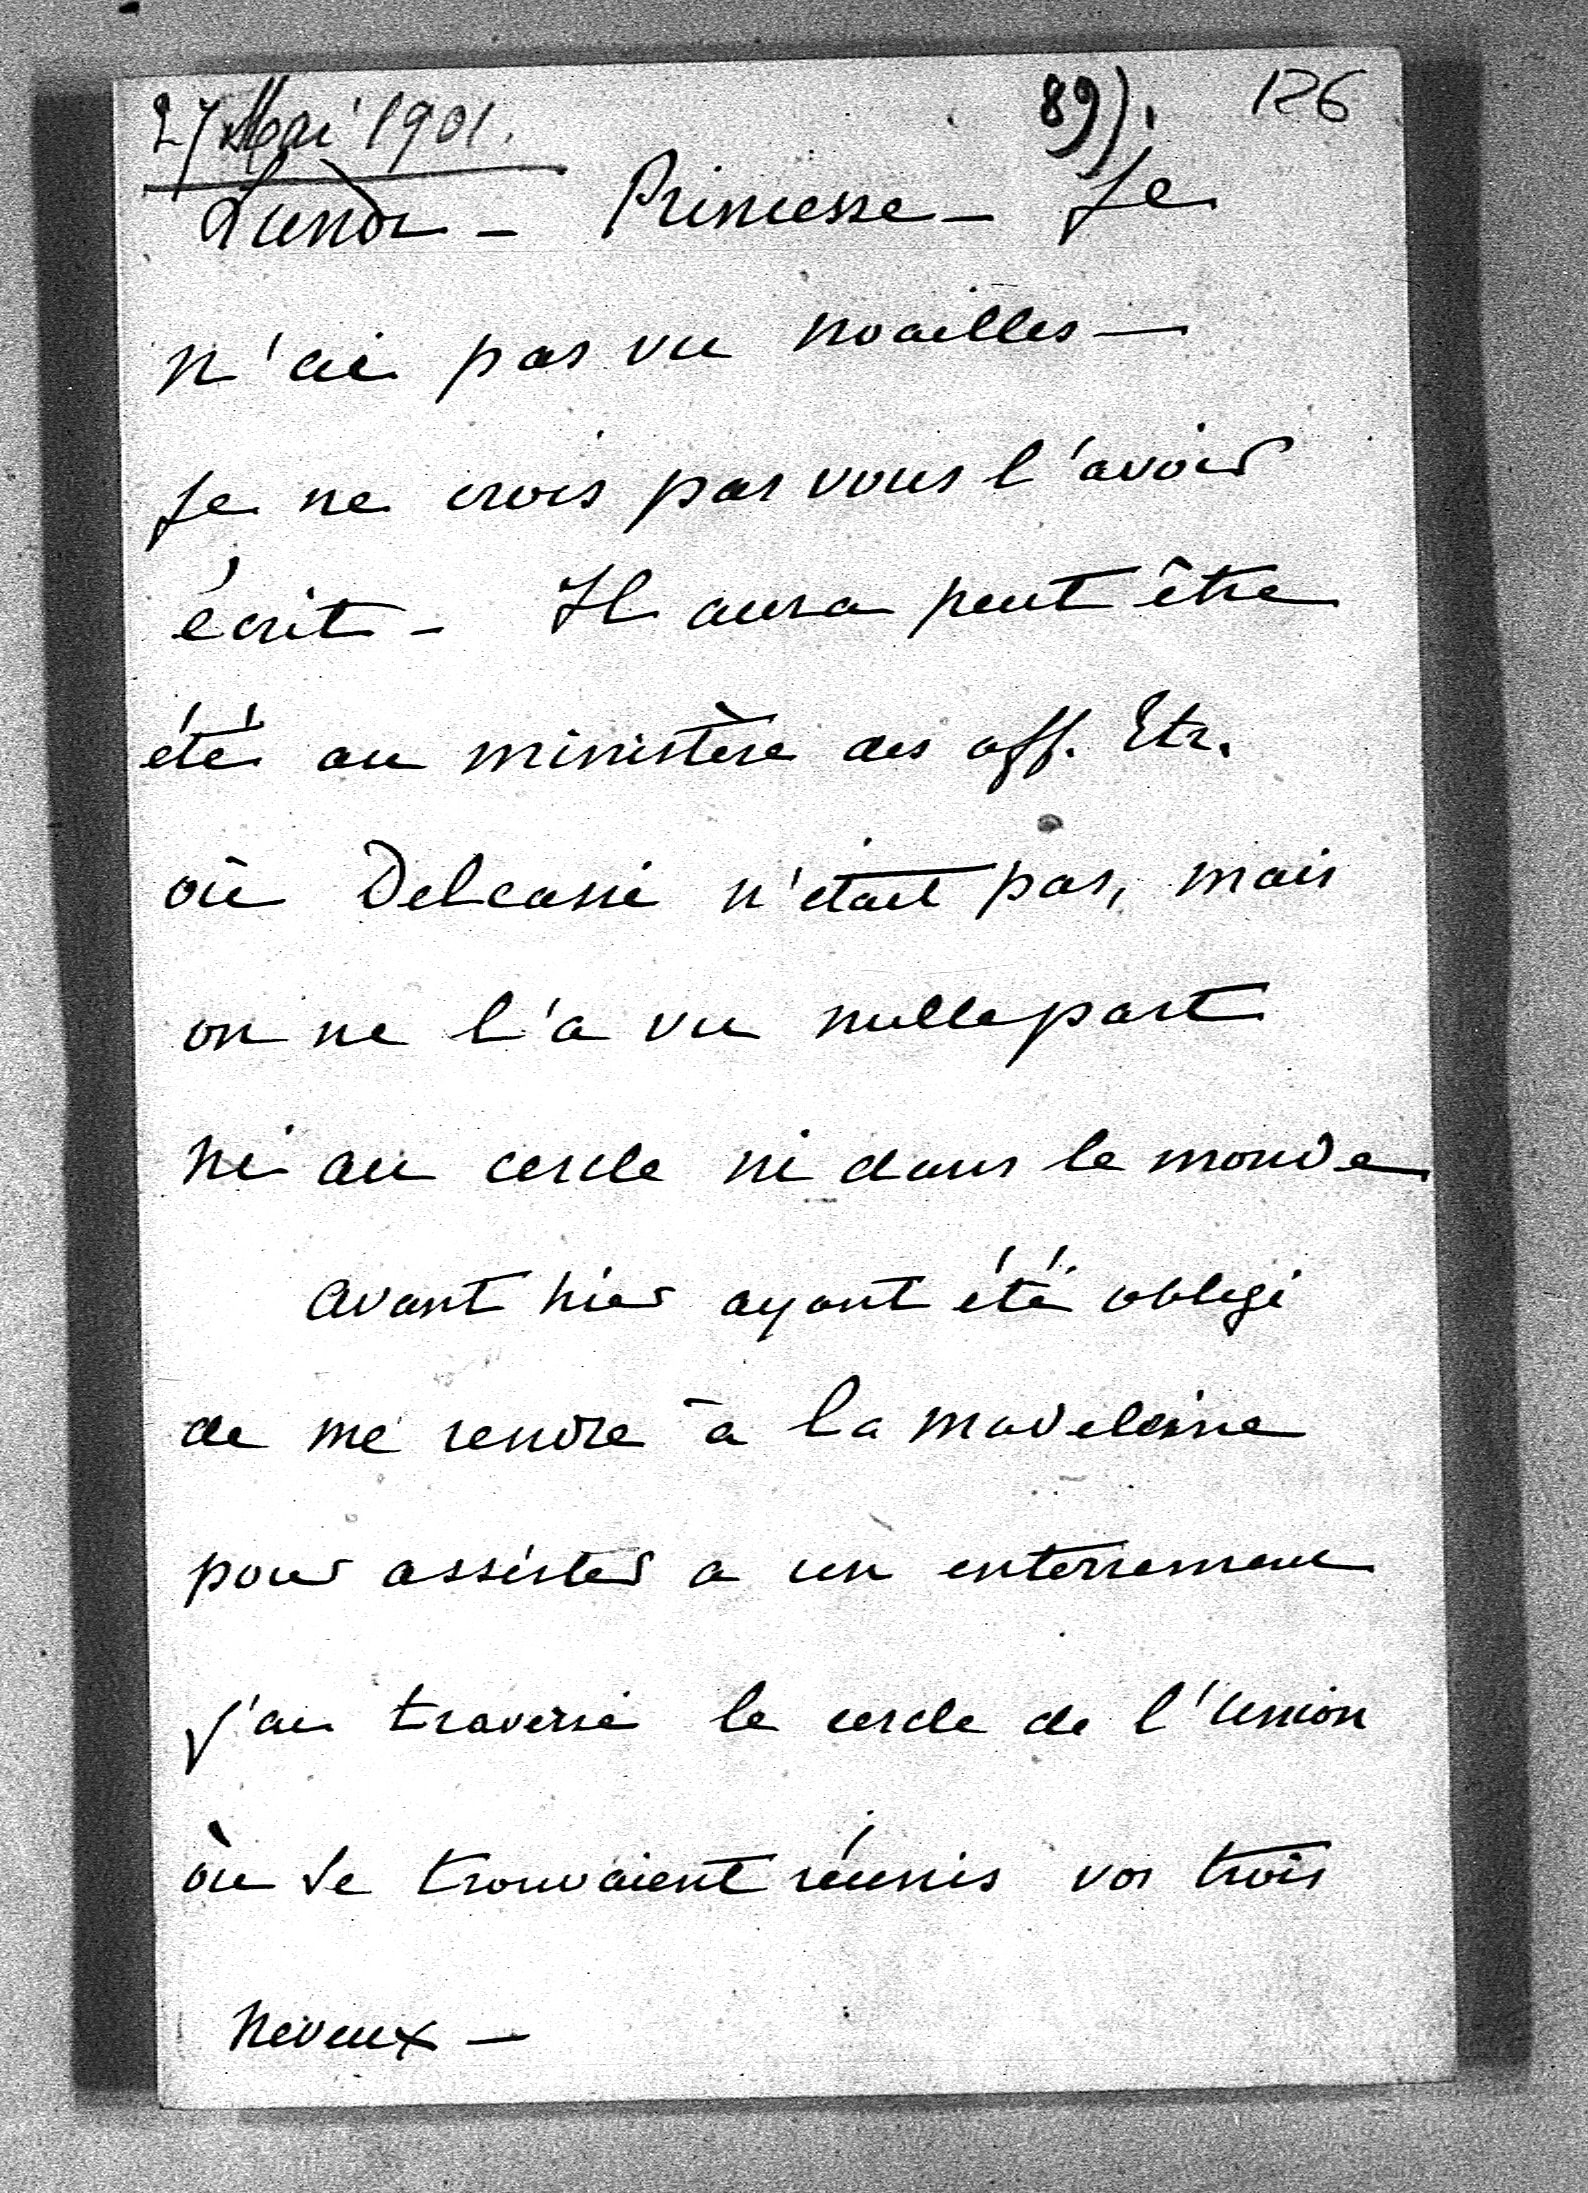 27 Mai 1901. 89). 126
Lundi - Princesse - Je
n'ai pas vu Noailles -
Je ne crois pas vous l'avoir
écrit - Il aura peut être
été au ministère des aff. Etr.
où Delcassé n'était pas, mais
on ne l'a vu nulle part
ni au cercle ni dans le monde
Avant hier ayant été obligé
de me rendre à la Madeleine
pour assister a un enterrement
j'ai traversé le cercle de l'Union
où se trouvaient réunis vos trois
neveux -